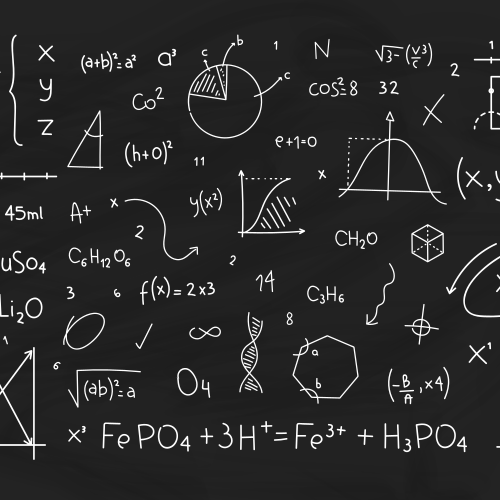 x
y
z
(a+b)²=a²
a³
c
b
c
1
N
√3-(v³/c)
2
1
Co²
cos²=8
32
(h+0)²
11
e+1=0
x
(x,y
45ml
A+
x
2
y(x²)
CH₂O
uSO₄
C₆H₁₂O₆
2
3
6
f(x)=2x3
14
C₃H₆
Li₂O
8
∞
1
a
b
x¹
6
√(ab)²=a
O₄
(-B/A,x4)
x³
FePO₄+3H⁺=Fe³⁺+H₃PO₄